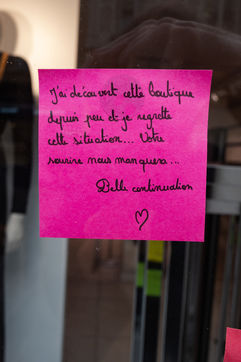 J'ai découvert cette boutique
depuis peu et je regrette
cette situation... Votre
sourire nous manquera...
Belle continuation
♡